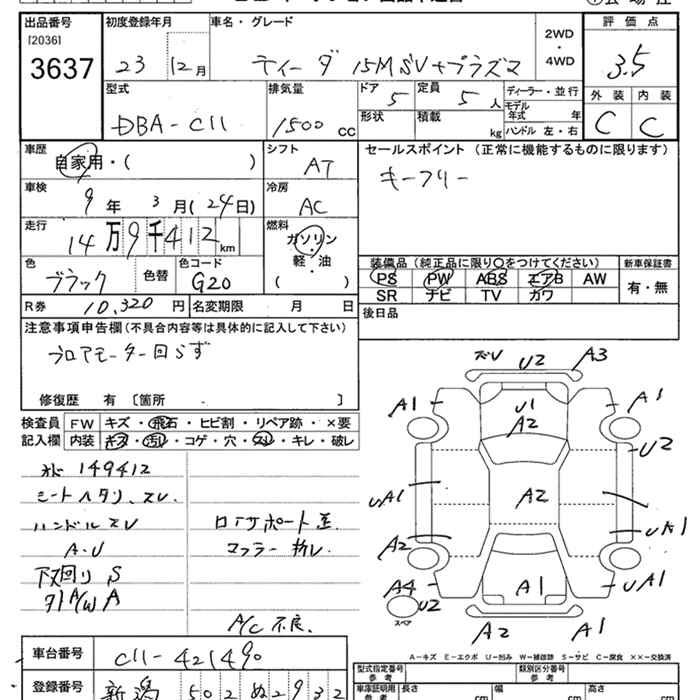 出品番号
[2036]
3637
初度登録年月
23 12月
車名・グレード
ティーダ 15M SV+プラズマ
2WD
・
4WD
評価点
3.5
外装 内装
C C
型式
DBA-C11
排気量
1500 cc
ドア
5
定員
5人
形状
積載
kg
ディーラー・並行
モデル年式 年
ハンドル 左・右
車歴
自家用・( )
シフト
AT
セールスポイント (正常に機能するものに限ります)
キーフリー
車検
9年 3月(24日)
冷房
AC
走行
14万9千412km
燃料
ガソリン
・
軽・油
( )
色
ブラック
色替
色コード
G20
装備品 (純正品に限り○をつけてください)
PS PW ABS エアB AW
SR ナビ TV カワ
新車保証書
有・無
R券 10,320円
名変期限 月 日
後日品
注意事項申告欄(不具合内容等は具体的に記入して下さい)
ブロアモーター回らず
修復歴 有 〔箇所 〕
検査員
記入欄
FW キズ・飛石・ヒビ割・リペア跡・×要
内装 キズ・汚れ・コゲ・穴・スレ・キレ・破レ
149412
シートヘタリ、スレ
ハンドルスレ
A・U
下回り S
A/W A
ロアサポート歪
マフラー
A/C不良
スレ U2 A3
A1 U1 A1
A2 U2
UA1 A2 UA1
A2
A4 A1 UA1
U2
スペア
A2 A1
A-キズ E-エクボ U-凹み W-補修跡 S-サビ C-腐食 ××-交換済
車台番号
C11-421490
登録番号
新潟 502 ぬ 2932
型式指定番号
参考
類別区分番号
参考
車庫証明用
参考
長さ cm
幅 cm
高さ cm